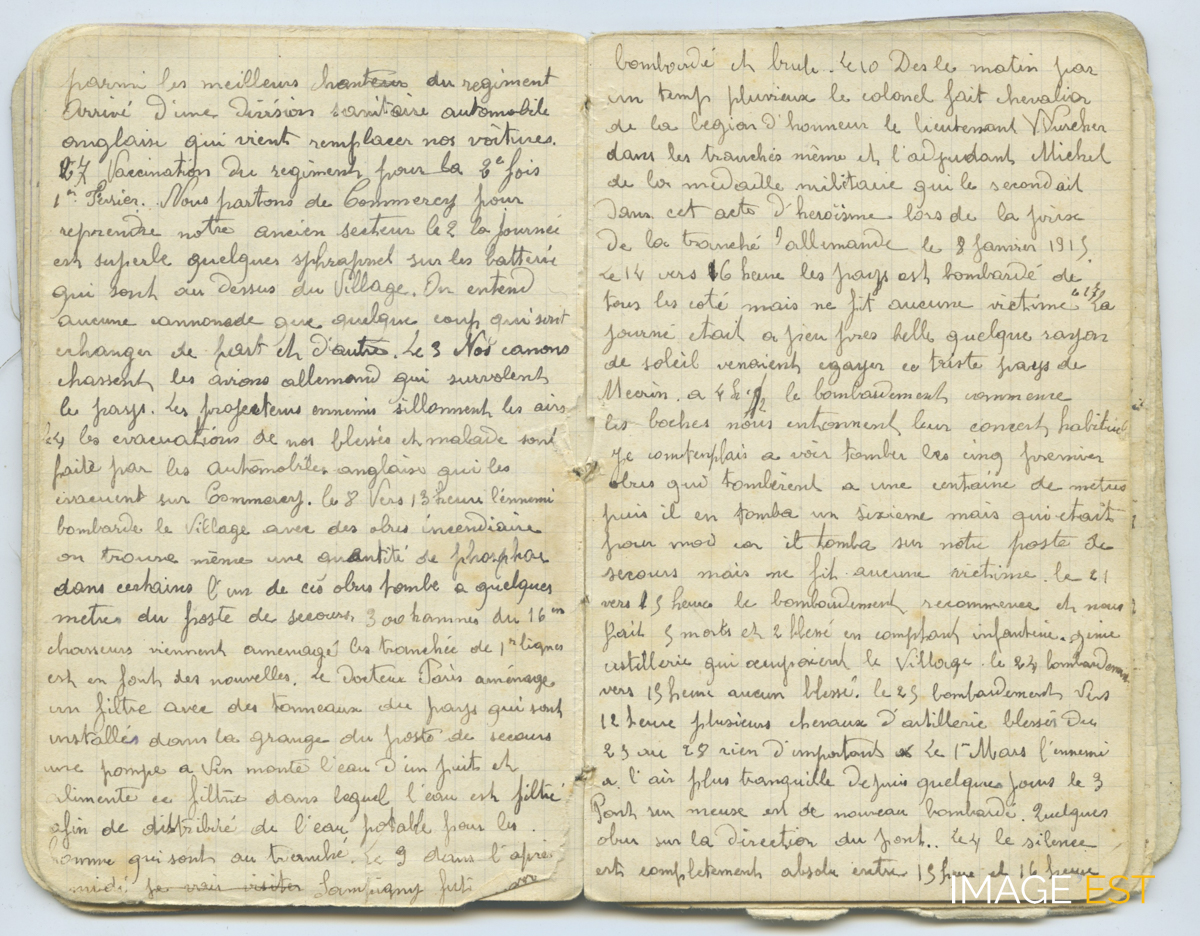 parmi les meilleurs chanteur du regiment
Arrivé d'une Division sanitaire automobile
anglaise qui vient remplacer nos voitures.
27 Vaccination du regiment pour la 3e fois
1er Fevrier. Nous partons de Commercy pour
reprendre notre ancien secteur le 2 la journée
est superbe quelques sphrapnel sur les batterie
qui sont au dessus du Village. On entend
aucune cannonade que quelque coup qui sont
echanger de part et d'autre. Le 3 Nos canons
chassent les avions allemand qui survolent
le pays. Les projecteurs ennemis sillonnent les airs
le 4 les evacuations de nos blessés et malade sont
faite par les automobiles anglaise qui les
evacuent sur Commercy. le 8 Vers 13 heure l'ennemi
bombarde le Village avec des obus incendiaire
on trouve même une quantité de phosphore
dans certains l'un de ces obus tombe a quelques
metres du poste de secours 300 hommes du 16em
chasseurs viennent amenagé les tranchée de 1re lignes
est en font des nouvelles. Le Docteur Paris aménage
un filtre avec des tonneaux du pays qui sont
installés dans la grange du poste de secours
une pompe a Vin monte l'eau d'un puit et
alimente ce filtre dans lequel l'eau est filtré
afin de distribué de l'eau potable pour les
homme qui sont au tranché. Le 9 dans l'apré
midi je vais visiter Sampigny
bombardé et brulé. Le 10 Des le matin par
un temp pluvieux le colonel fait chevalier
de la legion d'honneur le lieutenant
dans les tranchés même et l'adjudant Michel
de la medaille militaire qui le secondait
Dans cet acte d'heroïsme lors de la prise
de la tranché allemande le 8 Janvier 1915.
Le 14 vers 16 heure les pays est bombardé de
tous les coté mais ne fit aucune victime La
journé etait a peu pres belle quelque rayon
de soleil venaient egayer ce triste pays de
Mecrin. a 4 h 1/2 le bombardement commence
les boches nous entonnent leur concert habituel
Je contemplais a voir tomber les cinq premier
obus qui tombèrent a une centaine de metres
puis il en tomba un sixieme mais qui etait
pour moi car il tomba sur notre poste de
secours mais ne fit aucune victime. le 21
vers 15 heure le bombardement recommence et nous
fait 5 morts et 2 blessé en comptant infanterie. genie
artillerie qui occupaient le Village. le 24 bombardement
vers 15 heure aucun blessé. le 25 bombardement Vers
12 heure plusieurs chevaux d'artillerie blessés Du
25 au 28 rien d'important Le 1er Mars l'ennemi
a l'air plus tranquille depuis quelques jours le 3
Pont sur meuse est de nouveau bombardé. Quelques
obus sur la direction du pont.. Le 4 le silence
est completement absolu entre 15 heure et 16 heure
IMAGE EST